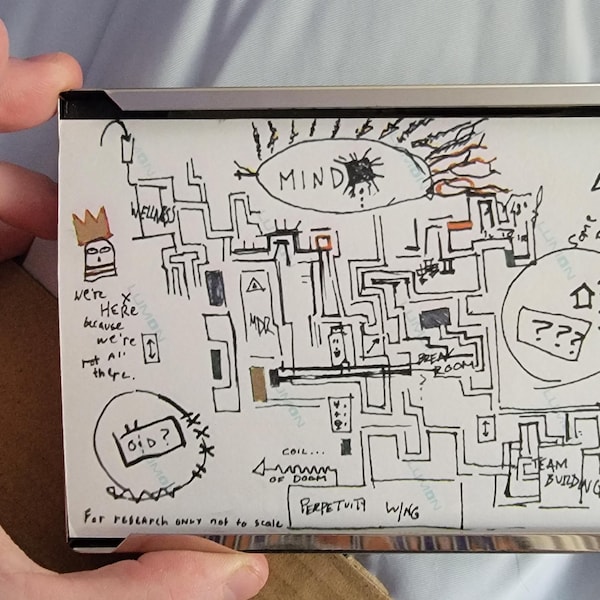 MIND
WELLNESS
LUMON
LUMON
LUMON
LUMON
LUMON
LUMON
LUMON
we're
HERE
because
we're
not All
there.
MDR
BREAK
ROOM
???
OID?
COIL...
OF DOOM
TEAM
BUILDING
PERPETUITY WING
For research only not to scale